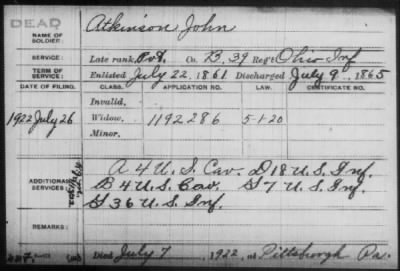 DEAD
NAME OF SOLDIER: Atkinson John
SERVICE: Late rank, Pvt. Co. B, 39 Reg't Ohio Inf
TERM OF SERVICE: Enlisted July 22, 1861 Discharged July 9, 1865
DATE OF FILING. CLASS. APPLICATION NO. LAW. CERTIFICATE NO.
Invalid,
1922 July 26 Widow, 1192286 5-1-20
Minor,
ADDITIONAL SERVICES: A 4 U.S. Cav. D 18 U.S. Inf.
B 4 U.S. Cav. G 7 U.S. Inf.
G 36 U.S. Inf.
REMARKS:
Died July 7, 1922, at Pittsburgh Pa.